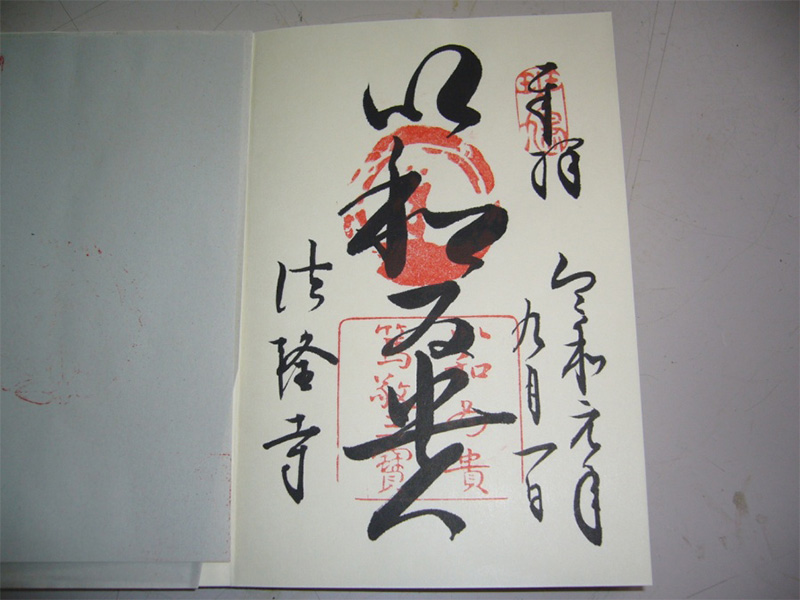 奉拝
斑鳩
令和元年
九月一日
以和為貴
以和為貴
篤敬三寶
法隆寺